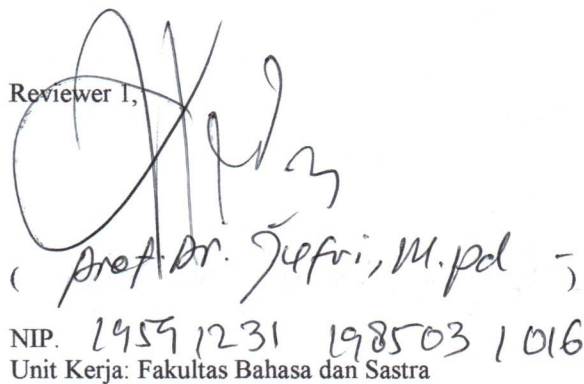 Reviewer 1,
( Prof. Dr. Jufri, M.pd )
NIP. 19591231 198503 1 016
Unit Kerja: Fakultas Bahasa dan Sastra